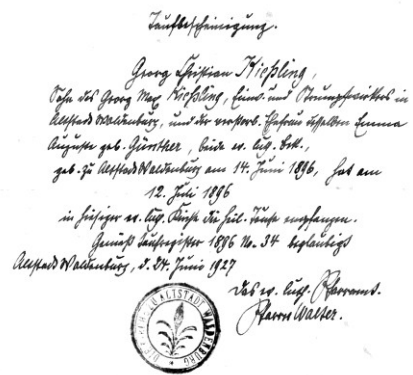 Taufbescheinigung.
Georg Christian Kießling,
Sohn des Georg Max Kießling, Einw. und Strumpfwirkers in
Altstadt Waldenburg, und der verstorb. Ehefrau desselben Emma
Auguste geb. Günther, beide ev. luth. Bek.,
geb. zu Altstadt Waldenburg am 14. Juni 1896, hat am
12. Juli 1896
in hiesiger ev. luth. Kirche die heil. Taufe empfangen.
Gemäß Taufregister 1896 No. 34 beglaubigt
Altstadt Waldenburg, d. 24. Juni 1927
Das ev. luth. Pfarramt.
Pfarrer Walter.
ALTSTADT WALDENBURG